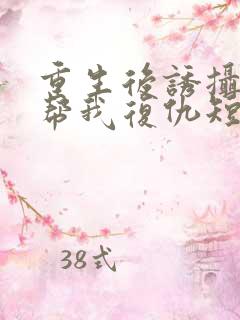 重生後誘攝
幫我復仇短
38式